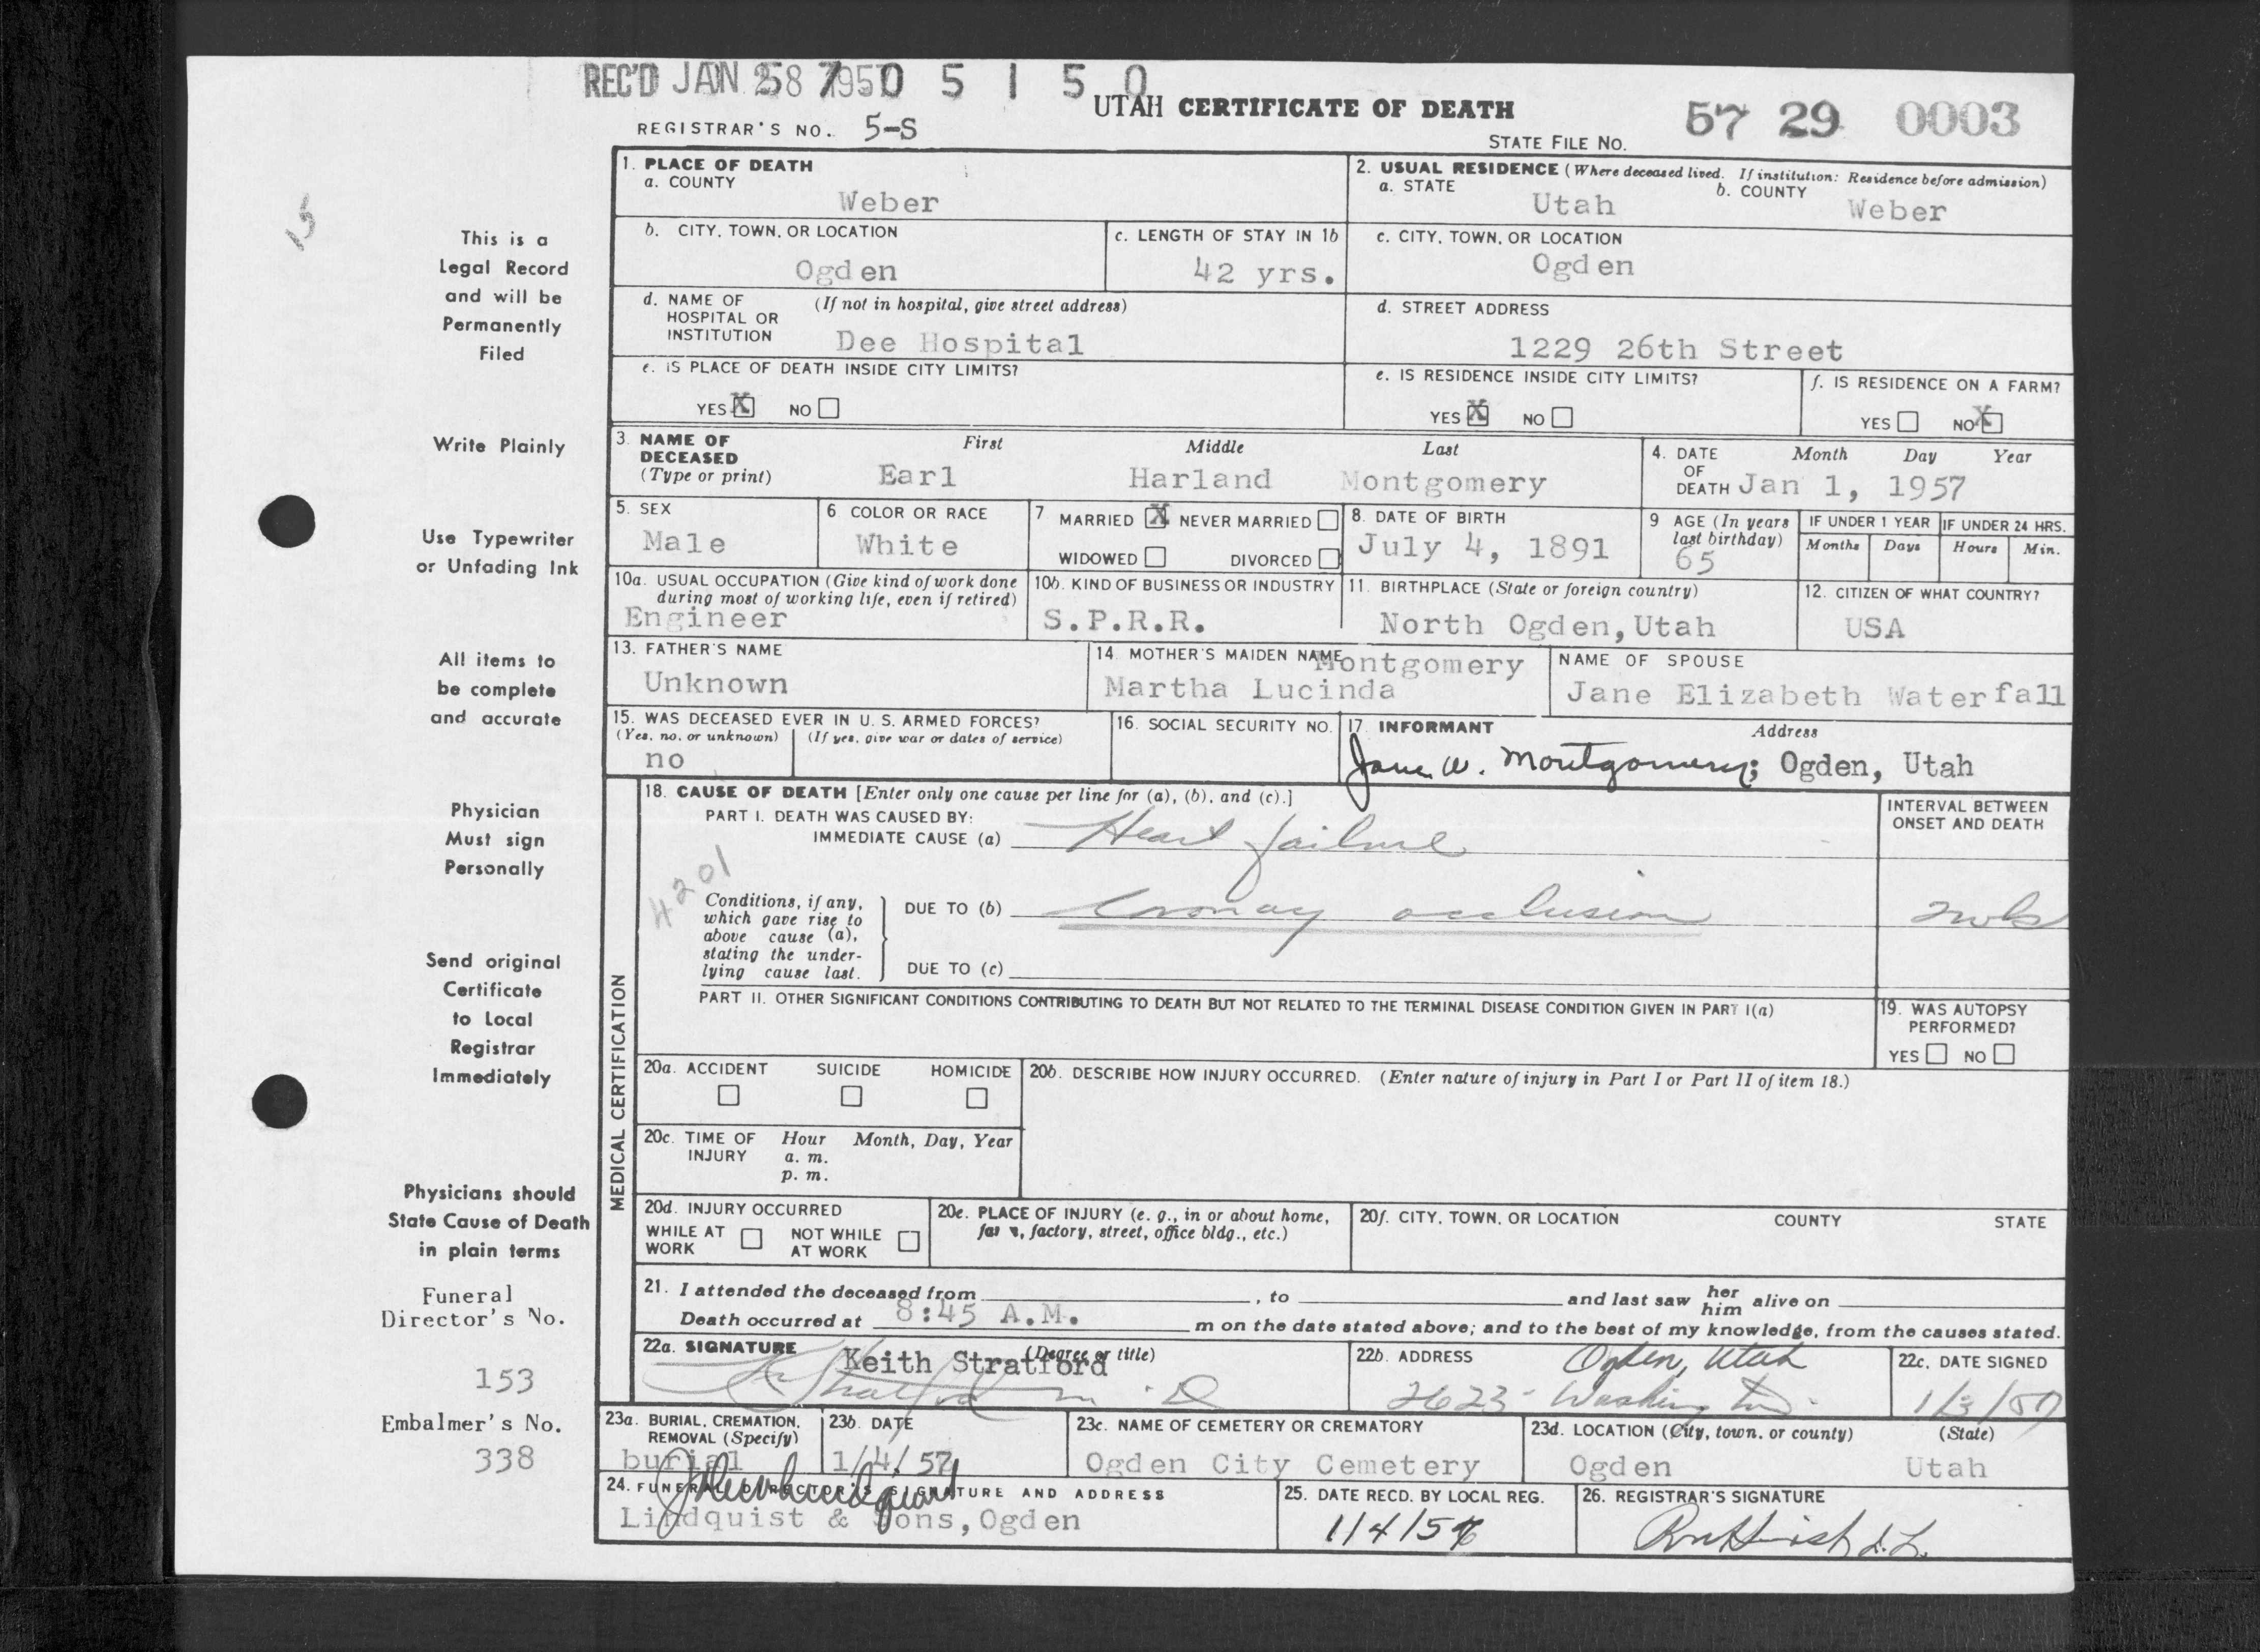 REC'D JAN 28 1957 0 5 1 5 0
UTAH CERTIFICATE OF DEATH
57 29 0003
REGISTRAR'S NO. 5-S
STATE FILE NO.
15
This is a
Legal Record
and will be
Permanently
Filed
Write Plainly
Use Typewriter
or Unfading Ink
All items to
be complete
and accurate
Physician
Must sign
Personally
Send original
Certificate
to Local
Registrar
Immediately
Physicians should
State Cause of Death
in plain terms
Funeral
Director's No.
153
Embalmer's No.
338
1. PLACE OF DEATH
a. COUNTY
Weber
2. USUAL RESIDENCE (Where deceased lived. If institution: Residence before admission)
a. STATE b. COUNTY
Utah Weber
b. CITY, TOWN, OR LOCATION
Ogden
c. LENGTH OF STAY IN 1b
42 yrs.
c. CITY, TOWN, OR LOCATION
Ogden
d. NAME OF (If not in hospital, give street address)
HOSPITAL OR
INSTITUTION Dee Hospital
d. STREET ADDRESS
1229 26th Street
e. IS PLACE OF DEATH INSIDE CITY LIMITS?
YES X NO
e. IS RESIDENCE INSIDE CITY LIMITS?
YES X NO
f. IS RESIDENCE ON A FARM?
YES NO X
3. NAME OF First Middle Last
DECEASED
(Type or print) Earl Harland Montgomery
4. DATE Month Day Year
OF
DEATH Jan 1, 1957
5. SEX
Male
6 COLOR OR RACE
White
7 MARRIED X NEVER MARRIED
WIDOWED DIVORCED
8. DATE OF BIRTH
July 4, 1891
9 AGE (In years
last birthday)
65
IF UNDER 1 YEAR IF UNDER 24 HRS.
Months Days Hours Min.
10a. USUAL OCCUPATION (Give kind of work done
during most of working life, even if retired)
Engineer
10b. KIND OF BUSINESS OR INDUSTRY
S.P.R.R.
11. BIRTHPLACE (State or foreign country)
North Ogden, Utah
12. CITIZEN OF WHAT COUNTRY?
USA
13. FATHER'S NAME
Unknown
14. MOTHER'S MAIDEN NAME
Montgomery
Martha Lucinda
NAME OF SPOUSE
Jane Elizabeth Waterfall
15. WAS DECEASED EVER IN U. S. ARMED FORCES?
(Yes, no, or unknown) (If yes, give war or dates of service)
no
16. SOCIAL SECURITY NO.
17. INFORMANT Address
Jane W. Montgomery; Ogden, Utah
MEDICAL CERTIFICATION
18. CAUSE OF DEATH [Enter only one cause per line for (a), (b), and (c).]
PART I. DEATH WAS CAUSED BY:
IMMEDIATE CAUSE (a) Heart failure
INTERVAL BETWEEN
ONSET AND DEATH
4201
Conditions, if any,
which gave rise to
above cause (a),
stating the under-
lying cause last.
DUE TO (b) Coronay occlusion 2 wks
DUE TO (c)
PART II. OTHER SIGNIFICANT CONDITIONS CONTRIBUTING TO DEATH BUT NOT RELATED TO THE TERMINAL DISEASE CONDITION GIVEN IN PART I(a)
19. WAS AUTOPSY
PERFORMED?
YES NO
20a. ACCIDENT SUICIDE HOMICIDE
20b. DESCRIBE HOW INJURY OCCURRED. (Enter nature of injury in Part I or Part II of item 18.)
20c. TIME OF Hour Month, Day, Year
INJURY a. m.
p. m.
20d. INJURY OCCURRED
WHILE AT NOT WHILE
WORK AT WORK
20e. PLACE OF INJURY (e. g., in or about home,
farm, factory, street, office bldg., etc.)
20f. CITY, TOWN, OR LOCATION COUNTY STATE
21. I attended the deceased from , to and last saw her him alive on
Death occurred at 8:45 A.M. m on the date stated above; and to the best of my knowledge, from the causes stated.
22a. SIGNATURE (Degree or title)
Keith Stratford
K Stratford M.D
22b. ADDRESS Ogden, Utah
2623 Washington
22c. DATE SIGNED
1/3/57
23a. BURIAL, CREMATION,
REMOVAL (Specify)
burial
23b. DATE
1/4/57
23c. NAME OF CEMETERY OR CREMATORY
Ogden City Cemetery
23d. LOCATION (City, town, or county) (State)
Ogden Utah
24. FUNERAL DIRECTOR'S SIGNATURE AND ADDRESS
Lindquist & Sons, Ogden
25. DATE RECD. BY LOCAL REG.
1/4/57
26. REGISTRAR'S SIGNATURE